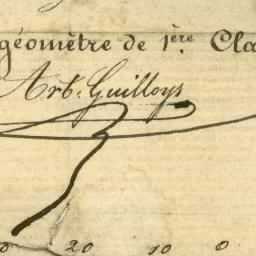 géomètre de 1ère Cla
Arb. Guilloys
20 10 0